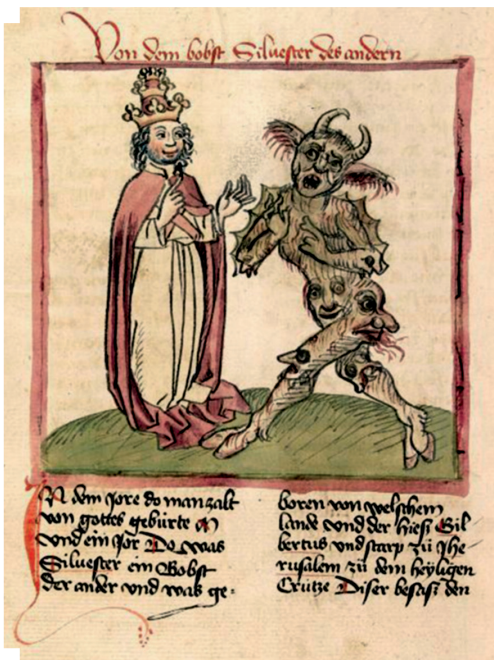 Von dem bobst Siluester des andern
IN dem jore do man zalt
von gottes gebürte M
vnd ein jor Do was
Siluester ein Bobst
der ander vnd was ge-
boren von welschem
lande vnd der hiesß Gil
bertus vnd starp zü Jhe
rusalem zü dem heyligen
Crütze Diser besasß den